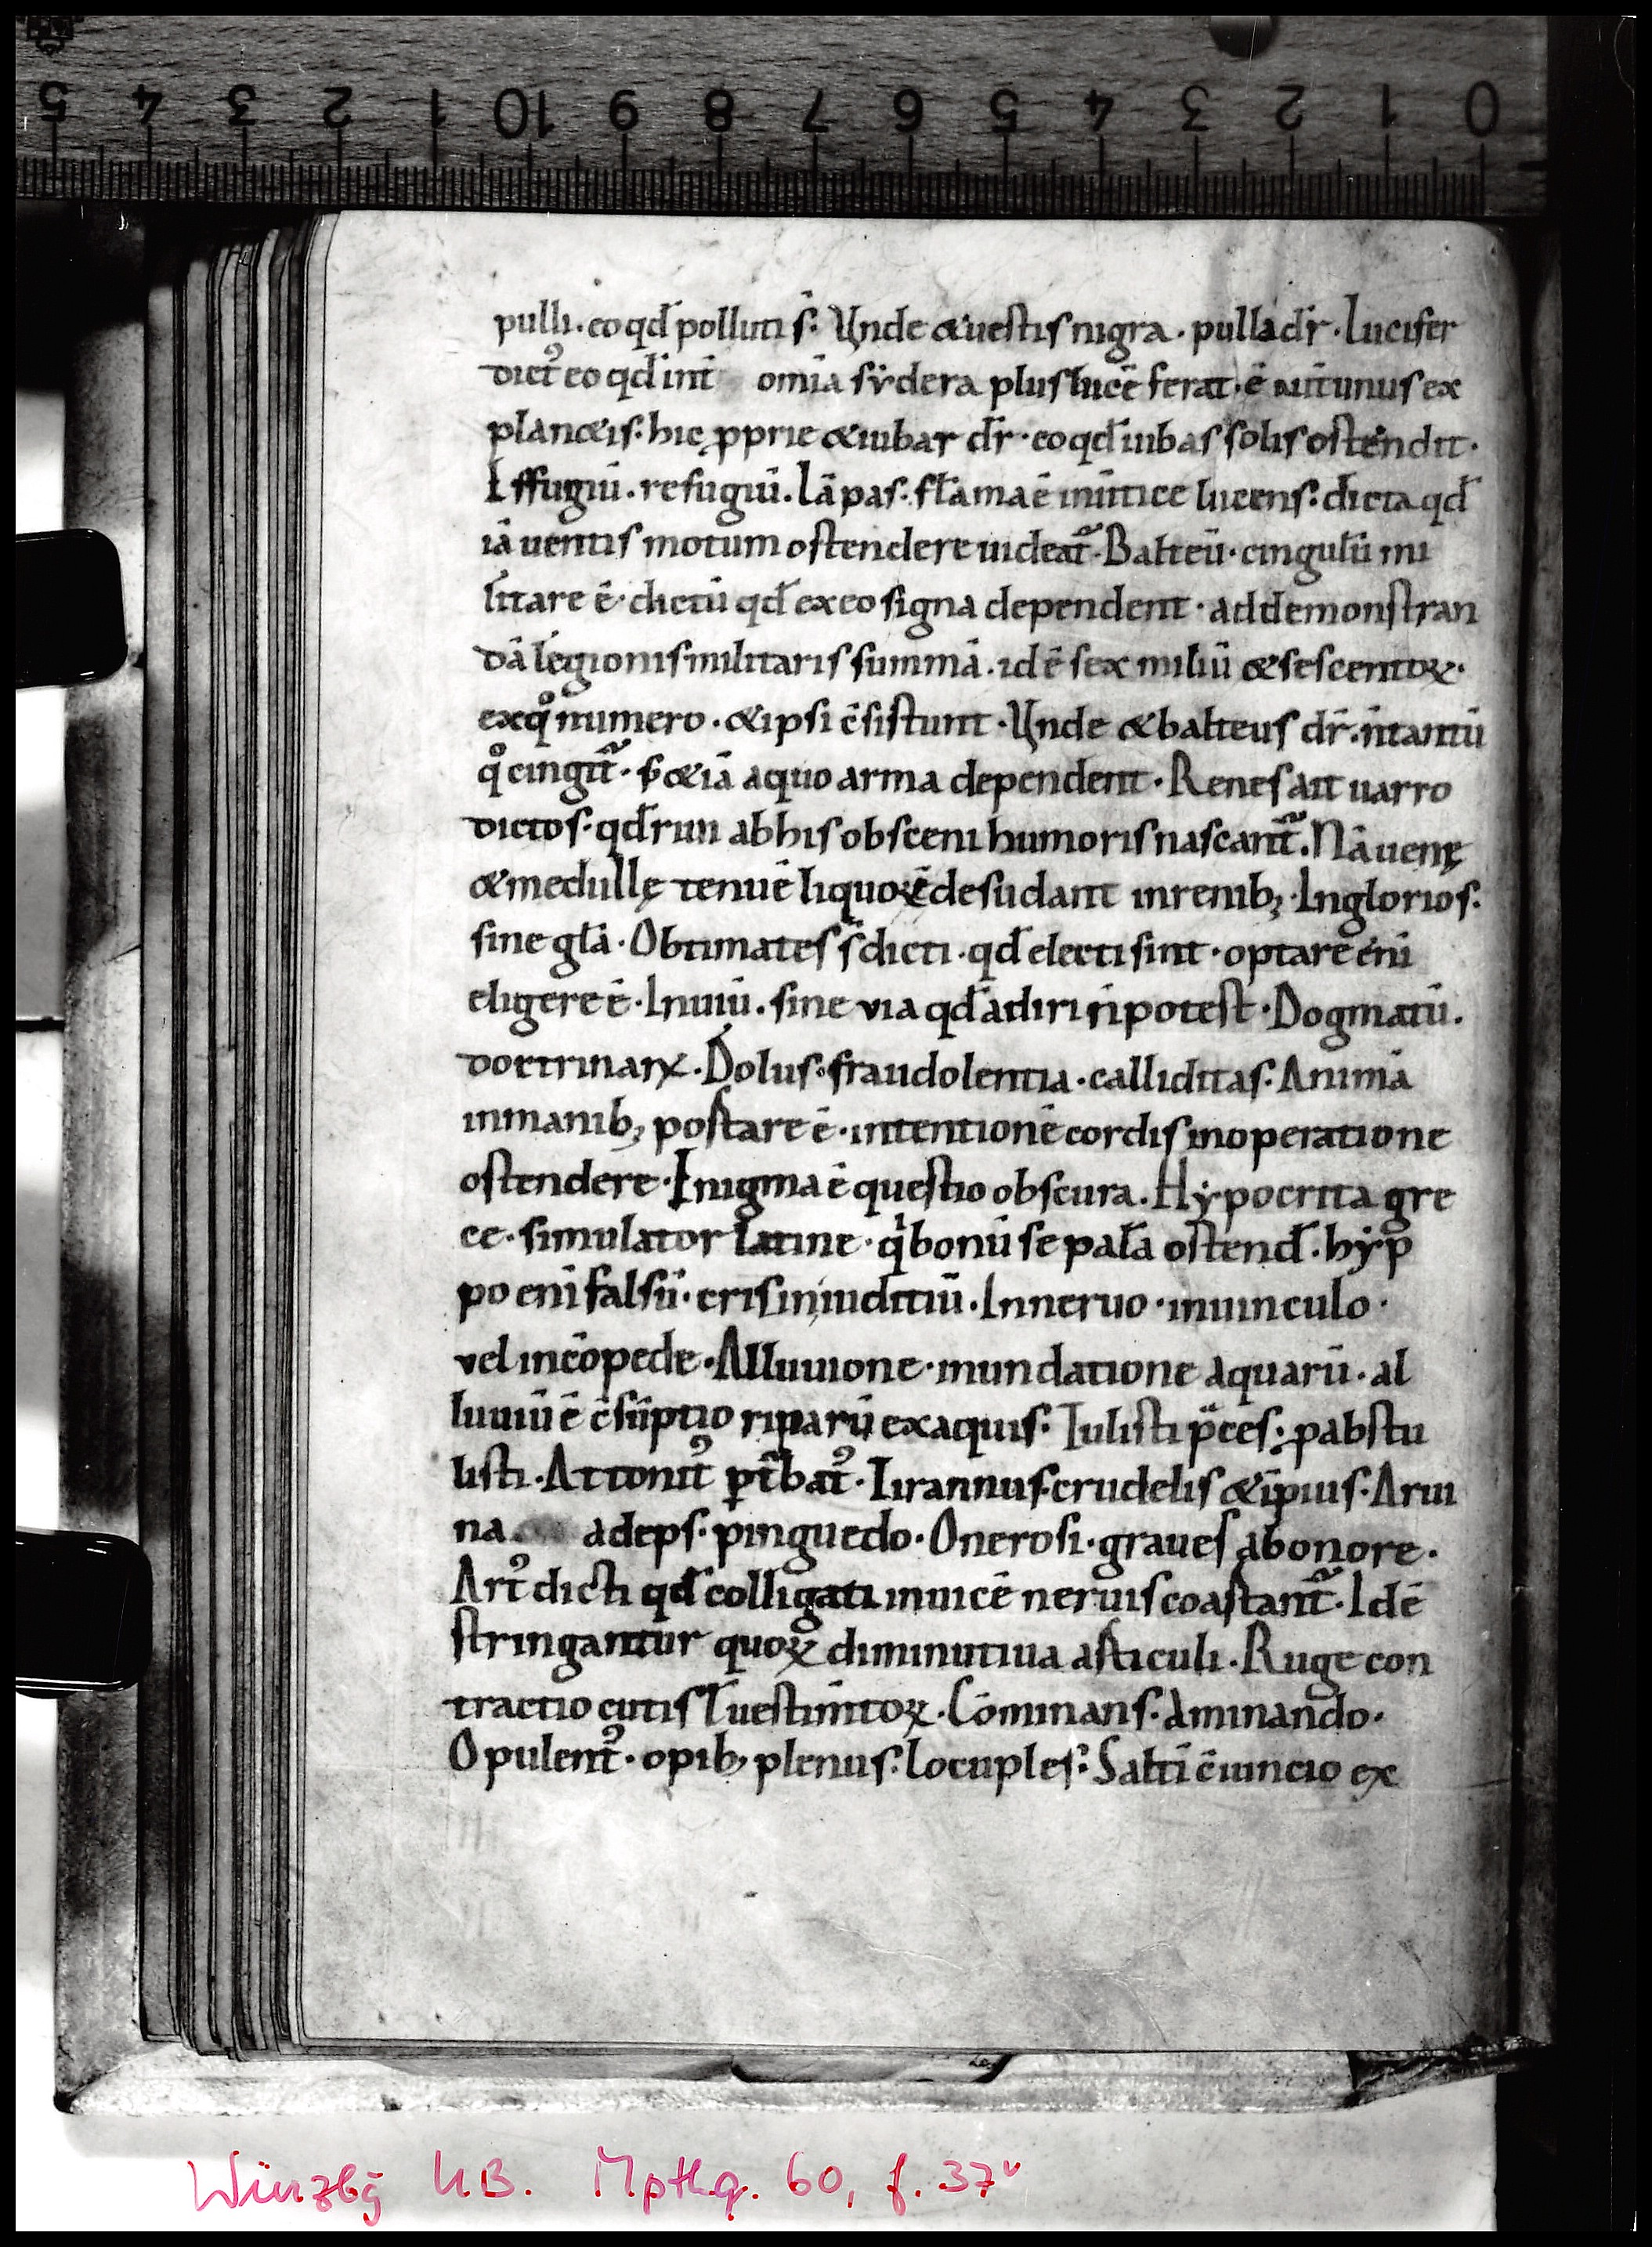 5 4 3 2 1 10 9 8 7 6 5 4 3 2 1 0
pulli. eo qđ polluti s̄. Unde & uestis nigra. pulla dr̄. Lucifer
dict᷒ eo qđ int̄ omīa sẏdera plus lucē ferat. ē aut̄ unus ex
plan&is. hic ꝓprie & iubar dr̄. eo qđ iubas solis ostendit.
Effugiū. refugiū. Lāpas. flāma ē in uertice lucens. dicta qđ
iā uentis motum ostendere uideat᷑. Balteū. cingulū mi
litare ē. dictū qđ ex eo signa dependent. ad demonstran
dā legionis militaris summā. id ē sex miliū & sescentoꝝ.
ex qͦ numero. & ipsi c̄sistunt. Unde & balteus dr̄. n̄ tantū
qͦ cingit᷑. s; &iā a quo arma dependent. Renes ait uarro
dictos. qđ riui ab his obsceni humoris nascant᷑. Nā uenę
& medullę tenuē liquorē desudant in renib; Inglorios.
sine glā. Obtimates s̄ dicti. qđ electi sint. optare eni
eligere ē. Inuiū. sine via qđ adiri n̄ potest. Dogmatū.
doctrinaꝝ. Dolus. fraudolentia. calliditas. Animā
in manib; portare ē. intentionē cordis in operatione
ostendere. Enigma ē questio obscura. Hẏpocrita gre
ce. simulator latine. qⁱ bonū se palā ostend̄. hẏp
po enī falsū. crisin iuditiū. In neruo. in uinculo.
vel in cōpede. Alluuione. inundatione aquarū. al
luuiū ē c̄sūptio riparū ex aquis. Tulisti p̄ces. p abstu
listi. Attonit᷒ ꝑt̄bat᷒. Tirannus. crudelis & īpius. Arui
na. adeps. pinguedo. Onerosi. graues ab onore.
Art᷒ dicti qđ colligati inuicē neruis coartant᷑. Id ē
stringantur quoꝝ diminutiua articuli. Ruge con
tractio cutis ł uestim̄toꝝ. Cōminans. a minando.
Opulent᷒. opib; plenus. locuples. Saltī c̄iunctio ex
Würzbg UB. Mpthq. 60, f. 37ᵛ